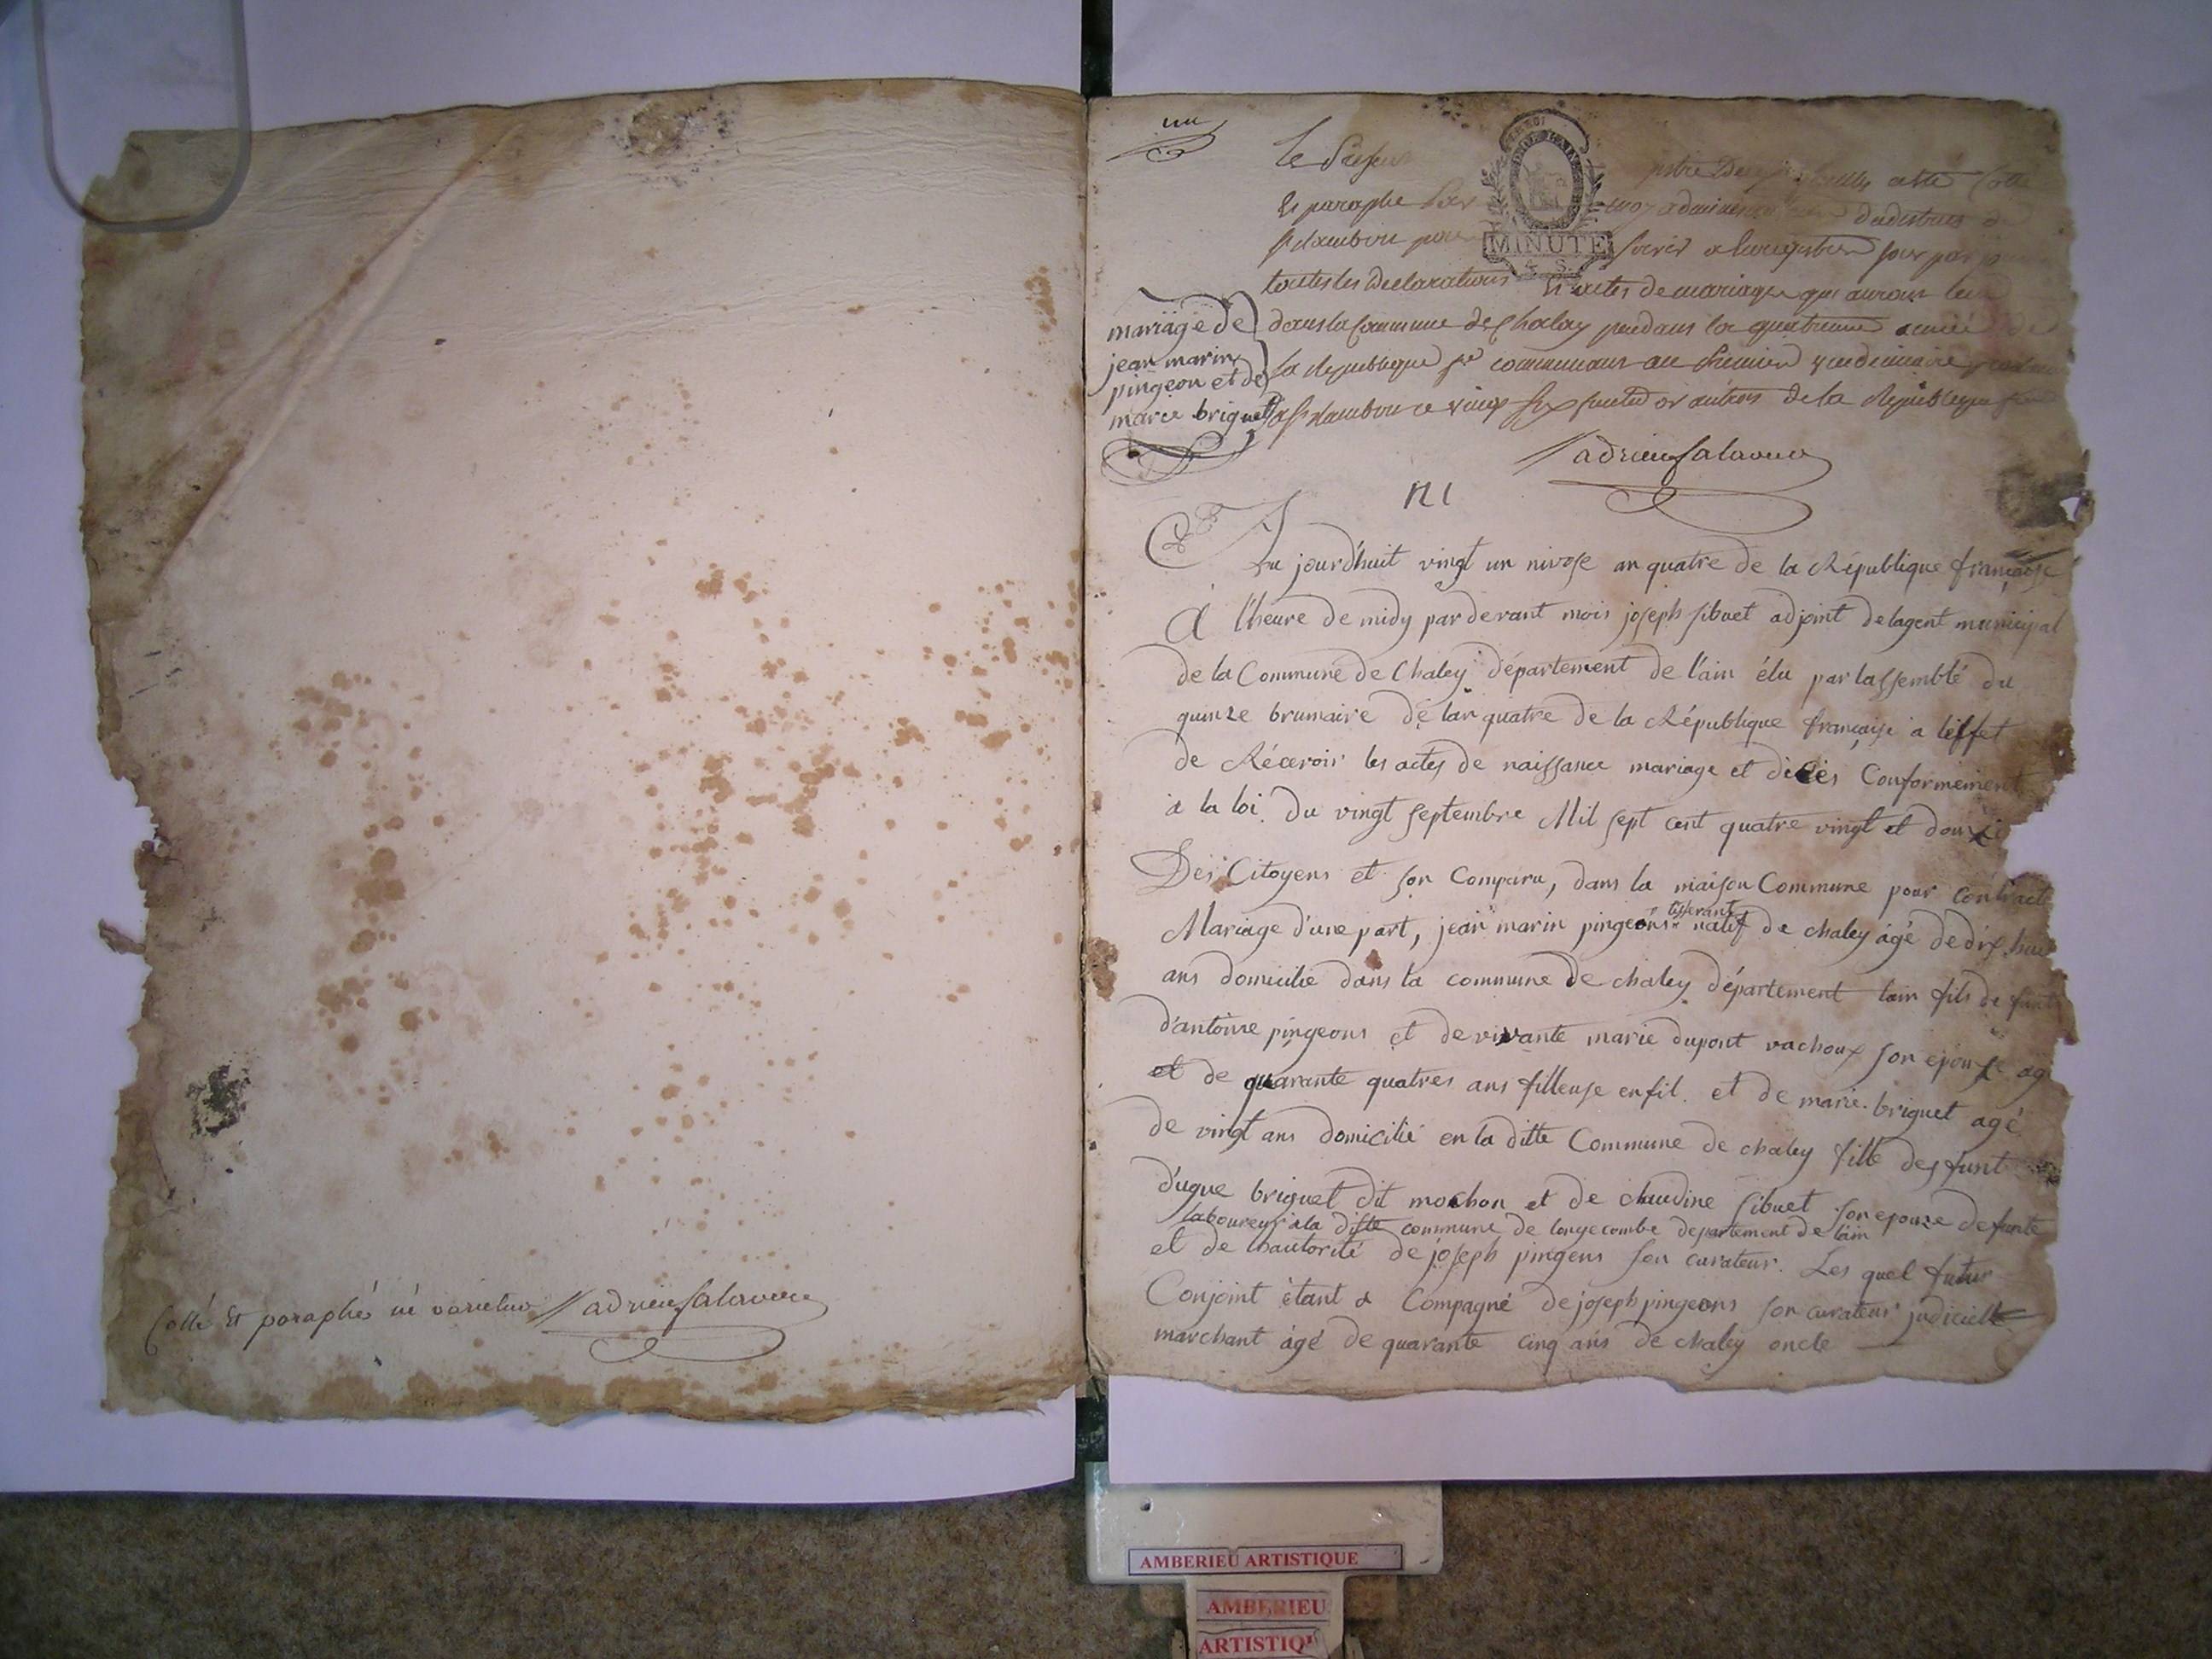 Collé Et paraphé né varietur adrien Salavuer
un
Le
Et paraphé par
MINUTE
4 S.
toutes les Declarations Et actes de mariage qui auront lieu
dans la Commune de Chaley pendans la quatrieme année de
la Republique commencant au premier vendemiaire
de la Republique
adrien
mariage de
jean marin
pingeon et de
marie briguet
N 1
Au jourd'huit vingt un nivose an quatre de la République française
A l'heure de midy par devant mois joseph sibuet adjoint de lagent municipal
de la Commune de Chaley département de l'ain élu par lassemblé du
quinze brumaire de lan quatre de la République française a l'effet
de Récevoir les actes de naissance mariage et décès Conformement
à la loi du vingt septembre Mil sept cent quatre vingt et douze
Des Citoyens et son Comparu, dans la maison Commune pour contracte
Mariage d'une part, jean marin pingeons tisserant natif de chaley ágé de dix huit
ans domicilie dans la commune de chaley département lain fils de
d'antoine pingeons et de vivante marie dupont vachoux son epouse ag
et de quarante quatres ans filleuse en fil. et de marie briguet agé
de vingt ans domicilié en la ditte Commune de chaley fille desfunt
d'ugue briguet dit mochon et de claudine sibuet son epouze defunte
laboureur a la ditte commune de longecombe departement de lain
et de l'hautorité de joseph pingens son curateur. Les quel futur
Conjoint étant a Compagné de joseph pingeons son curateur judicielle
marchant ágé de quarante cinq ans de chaley oncle
AMBERIEU ARTISTIQUE
AMBERIEU
ARTISTIQU